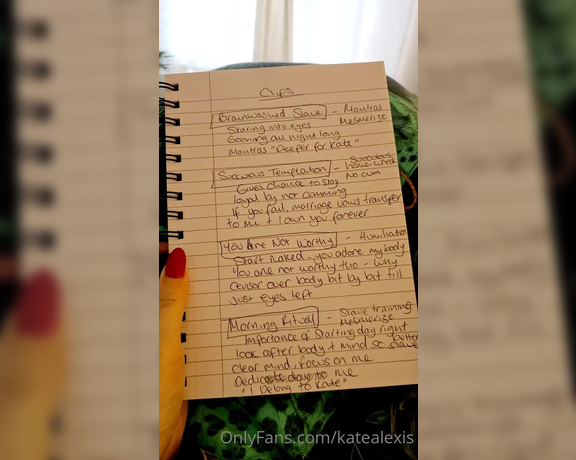 Clips
Brainwashed Slave - Mantras
Staring into eyes Mesmerize
Gooning all night long
Mantras "Deeper for Kate"
Succubus Temptation - Succubus
Home-wreck
Gives chance to stay No cum
loyal by not cumming
If you fail, marriage vows transfer
to me + I own you forever
You Are Not Worthy - Humiliation
Start naked - you adore my body
You are not worthy tho - why
censor over body bit by bit till
just eyes left
Morning Ritual - Slave training
Mesmerize
Importance of starting day right
look after body + mind so better
slave
clear mind, focus on me
Dedicate day to me
"I Belong to Kate"
OnlyFans.com/katealexis